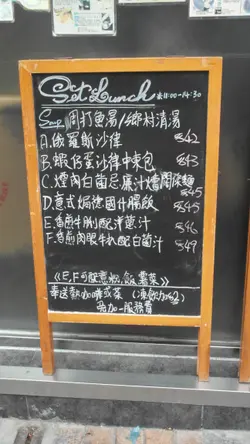 Set Lunch 11:00-14:30
Soup 周打魚湯/鄉村清湯
A.俄羅斯沙律 $42
B.蝦仁蛋沙律中東包 $43
C.煙肉白菌忌廉汁燴闊條麵 $45
D.意式焗德國牛腸飯 $45
E.香煎牛脷配洋蔥汁 $46
F.香煎肉眼牛扒配白菌汁 $49
《E,F可配意粉,飯,薯菜》
奉送熱咖啡或茶 (凍飲加$2)
另加一服務費